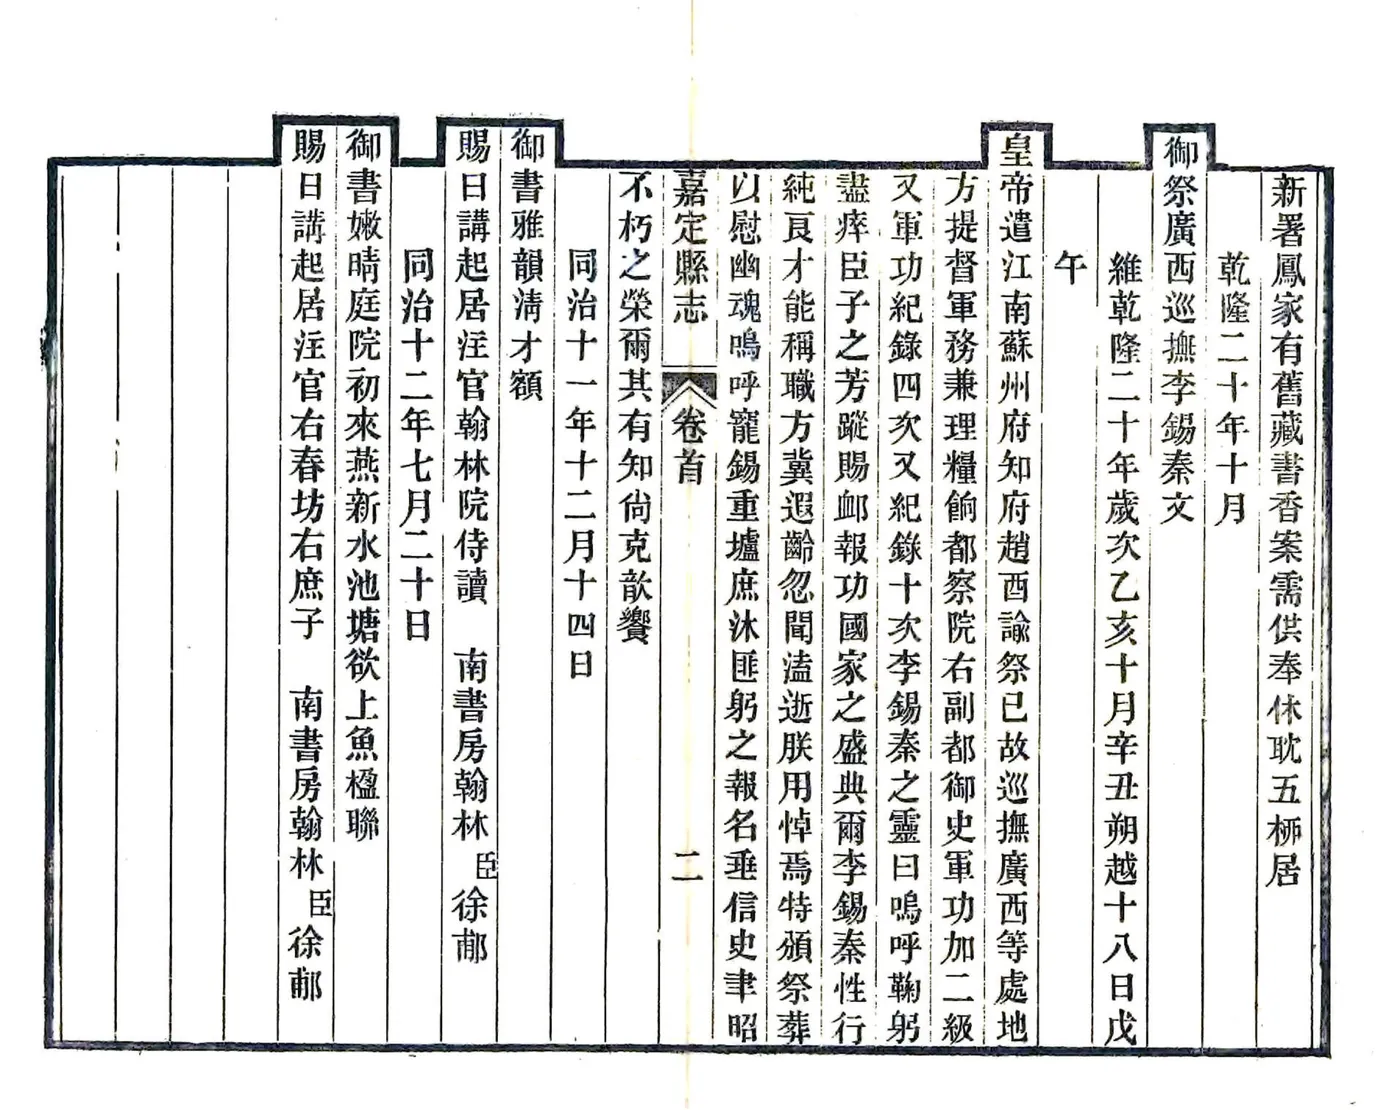 新署鳳家有舊藏書香案需供奉休耽五柳居
乾隆二十年十月
御祭廣西巡撫李錫秦文
維乾隆二十年歲次乙亥十月辛丑朔越十八日戊
午
皇帝遣江南蘇州府知府趙酉諭祭已故巡撫廣西等處地
方提督軍務兼理糧餉都察院右副都御史軍功加二級
又軍功紀錄四次又紀錄十次李錫秦之靈曰嗚呼鞠躬
盡瘁臣子之芳蹤賜卹報功國家之盛典爾李錫秦性行
純良才能稱職方冀遐齡忽聞溘逝朕用悼焉特頒祭葬
以慰幽魂嗚呼寵錫重壚庶沐匪躬之報名垂信史聿昭
嘉定縣志 卷首 二
不朽之榮爾其有知尙克歆饗
同治十一年十二月十四日
御書雅韻淸才額
賜日講起居注官翰林院侍讀 南書房翰林臣徐郙
同治十二年七月二十日
御書嫩晴庭院初來燕新水池塘欲上魚楹聯
賜日講起居注官右春坊右庶子 南書房翰林臣徐郙